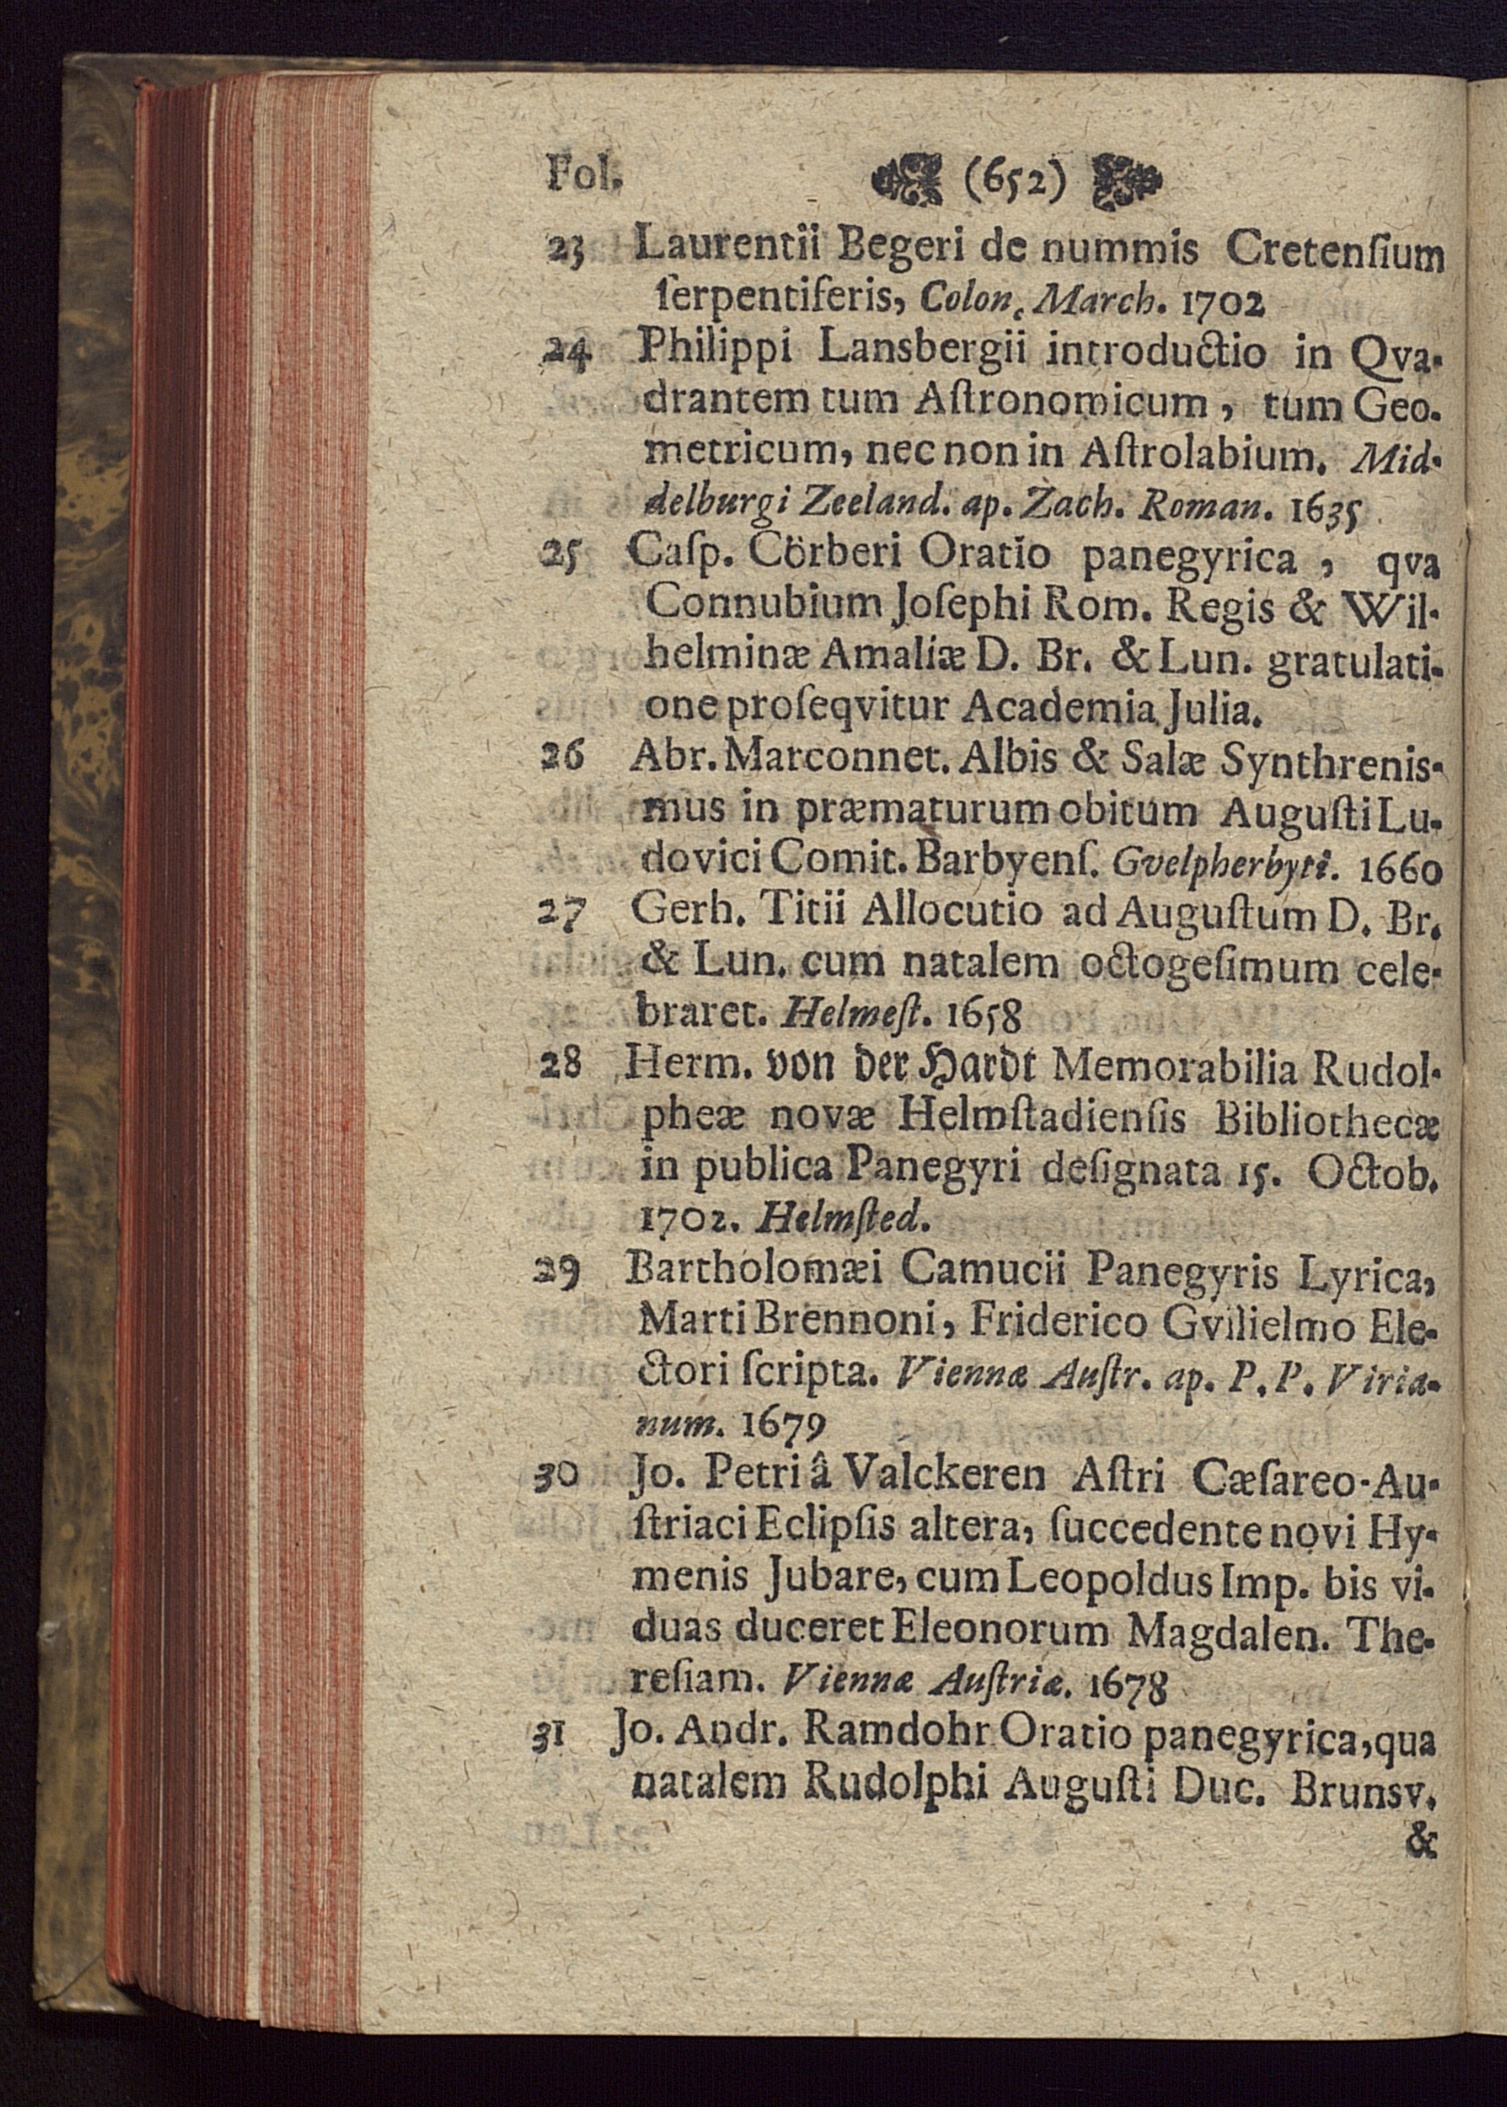 Fol. (652)
23 Laurentii Begeri de nummis Cretenſium
ſerpentiferis, Colon. March. 1702
24 Philippi Lansbergii introductio in Qva-
drantem tum Aſtronomicum, tum Geo-
metricum, nec non in Aſtrolabium. Mid-
delburgi Zeeland. ap. Zach. Roman. 1635
25 Caſp. Cörberi Oratio panegyrica, qva
Connubium Joſephi Rom. Regis & Wil-
helminæ Amaliæ D. Br. & Lun. gratulati-
one proſeqvitur Academia Julia.
26 Abr. Marconnet. Albis & Salæ Synthrenis-
mus in præmaturum obitum Auguſti Lu-
dovici Comit. Barbyenſ. Gvelpherbyti. 1660
27 Gerh. Titii Allocutio ad Auguſtum D. Br.
& Lun. cum natalem octogeſimum cele-
braret. Helmeſt. 1658
28 Herm. von der Hardt Memorabilia Rudol-
pheæ novæ Helmſtadienſis Bibliothecæ
in publica Panegyri deſignata 15. Octob.
1702. Helmſted.
29 Bartholomæi Camucii Panegyris Lyrica,
Marti Brennoni, Friderico Gvilielmo Ele-
ctori ſcripta. Viennæ Auſtr. ap. P. P. Viria-
num. 1679
30 Jo. Petri â Valckeren Aſtri Cæſareo-Au-
ſtriaci Eclipſis altera, ſuccedente novi Hy-
menis Jubare, cum Leopoldus Imp. bis vi-
duas duceret Eleonorum Magdalen. The-
reſiam. Viennæ Auſtriæ. 1678
31 Jo. Andr. Ramdohr Oratio panegyrica, qua
natalem Rudolphi Auguſti Duc. Brunsv.
&